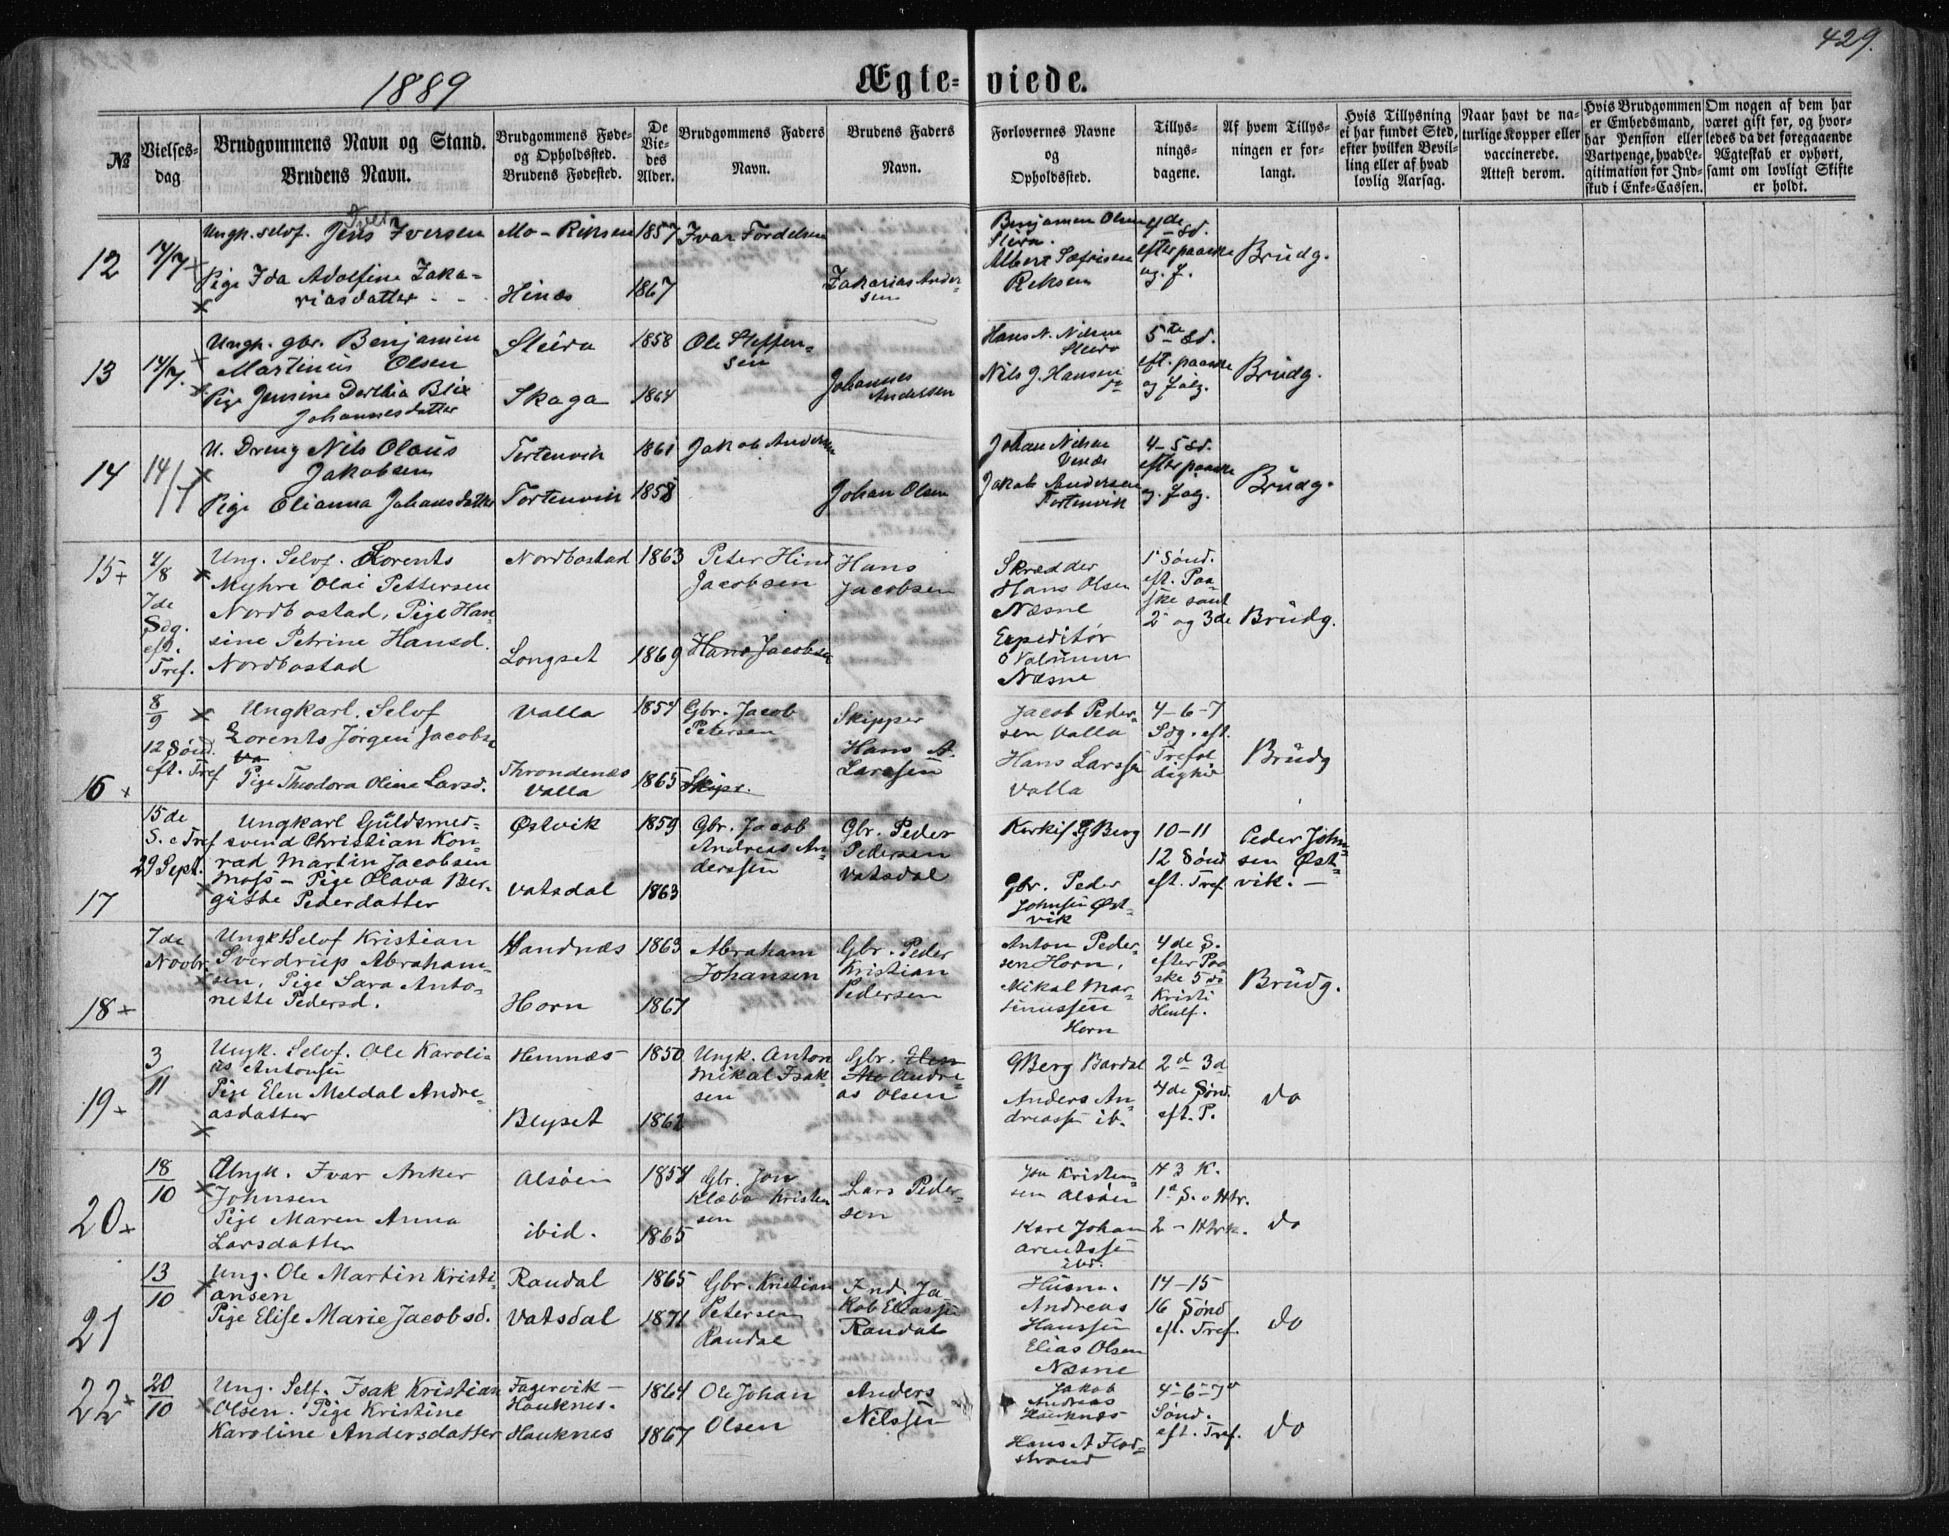 429.
1889
Ægte- viede.
№
Vielses-
dag.
Brudgommens Navn og Stand.
Brudens Navn.
Brudgommens Føde-
og Opholdssted.
Brudens Fødested.
De
Vie-
des
Alder.
Brudgommens Faders
Navn.
Brudens Faders
Navn.
Forlovernes Navne
og
Opholdssted.
Tillys-
nings-
dagene.
Af hvem Tillys-
ningen er for-
langt.
Hvis Tillysning
ei har fundet Sted,
efter hvilken Bevil-
ling eller af hvad
lovlig Aarsag.
Naar havt de na-
turlige Kopper eller
vaccinerede.
Attest derom.
Hvis Brudgommen
er Embedsmand,
har Pension eller
Vartpenge, hvad Le-
gitimation for Ind-
skud i Enke-Cassen.
Om nogen af dem har
været gift før, og hvor-
ledes da det foregaaende
Ægteskab er ophørt,
samt om lovligt Skifte
er holdt.
12
14/7
Ungk. selvf. Jens Iversen
Pige Ida Adolfine Zaka-
riasdatter
Mo - Riksen
Hinæs
1857
1867
Ivar Tordelsen
Zakarias Ander-
sen
Benjamin Olsen
Steira.
Albert Sefrisen
Reksen
4de sd.
efter paaske
og f.
Brudg.
13
14/7.
Ungk. gbr. Benjamin
Martinus Olsen
Pige Jensine Dorthia Blix
Johannesdatter
Steira
Skaga
1858
1864
Ole Steffen-
sen
Johannes
Andersen
Hans N. Nilsen
Steira
Nils J. Hansen
do
5te sd.
eft. paaske
og følg.
Brudg.
14
14/7
U. Dreng Nils Olaus
Jakobsen
Pige Olianna Johansdatter
Tortenvik
Tortenvik
1861
1858
Jakob Andersen
Johan Olsen
Johan Nilsen
Jakob Andersen
Tortenvik
4-5 sd.
efter paaske
og følg.
Brudg.
15 +
4/8
7de
Sdg.
eft.
Tref.
Ung. Selvf. Lorents
Myhre Olai Pettersen
Nordbostad, Pige Han
sine Petrine Hansd.
Nordbostad
Nordbostad
Longset
1863
1869
Peter Hind
Jacobsen
Hans Jacobsen
Hans
Jacobsen
Skrædder
Hans Olsen
Næsne
Expeditør
Næsne
1 Sønd.
eft. Paa
ske samt
2 og 3de
Brudg.
16 +
8/9
12 Sønd.
eft. Tref
Ungkarl. Selvf
Lorents Jørgen Jacobse
Va
Pige Theodora Oline Larsd.
Valla
Throndenæs
Valla
1854
1865
Gbr. Jacob
Petersen
Skipr.
Skipper
Hans A.
Larssen
Jacob Peder-
sen Valla
Hans Larssen
Valla
4-6-7
Sdg. eft.
Trefol
dighed
Brudg
17
15de
S. e Tref
29 Sept.
Ungkarl Guldsmed-
svend Christian Kon-
rad Martin Jacobsen
Moss - Pige Olava Ber-
gitte Pederdatter
Østvik
Vatsdal
1859
1863
Gbr. Jacob
Andreas An-
derssen
Gbr. Peder
Pedersen
Vatsdal
Kirkes. G Berg
Gbr. Peder
Johnsen Øst-
vik
10-11
12 Sønd
eft. Tref
Peder John-
sen Øst-
vik. -
18 +
7de
Novbr.
Ungk. Selvf Kristian
Sverdrup Abraham-
sen, Pige Sara Anto-
nette Pedersd.
Sandnæs
Horn
1863
1867
Abraham
Johansen
Gbr. Peder
Kristian
Pedersen
Anton Peder-
sen Horn,
Mikal Mar-
tinussen
Horn
4de S.
efter Paa
ske 5 do
Kristi
Himlf.
Brudg.
19 +
3/11
Ungk. Selvf. Ole Karoli-
us Antonsen
Pige Elen Meldal Andre-
asdatter
Hemnæs
Blyset
1850
1862
Ungk. Anton
Mikal Isak-
sen
Gbr.
Andre-
as Olsen
G Berg Bardal
Anders An-
dreassen ib.
2d 3d
4de Sønd.
eft. P.
do
20 +
18/10
Ungk. Ivar Anker
Johnsen
Pige Maren Anna
Larsdatter
Alsøen
ibid.
1854
1865
Gbr. Jon
Klæbo Kristen
sen
Lars Peder-
sen
Jon Kristen-
sen Alsøen
Karl Johan
Arentssen
ibd.
H 3 K.
do
21
13/10
Ung. Ole Martin Kristi-
ansen
Pige Elise Marie Jacobsd.
Randal
Vatsdal
1865
1871
Gbr. Kristian
Petersen
Randal
Ind. Ja
kob Eliassen
Randal
Husm.
Andreas
Hanssen
Elias Olsen
Næsne
14-15
16 Sønd
eft. Tref.
do
22 +
20/10
Ung. Self. Isak Kristian
Olsen. Pige Kristine
Karoline Andersdatter
Fagervik -
Hauknes.
Hauknes
1864
1867
Ole Johan
Olsen
Anders
Nilssen
Jakob
Andreas
Hauknæs
Hans A Flod-
strand
4-6-7
Sønd.
eft. Tref.
do